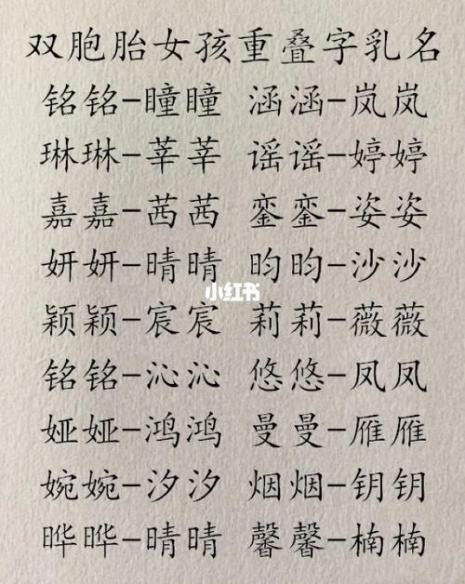 双胞胎女孩重叠字乳名
铭铭-瞳瞳 涵涵-岚岚
琳琳-莘莘 谣谣-婷婷
嘉嘉-茜茜 銮銮-姿姿
妍妍-晴晴 昀昀-沙沙
小红书
颖颖-宸宸 莉莉-薇薇
铭铭-沁沁 悠悠-凤凤
娅娅-鸿鸿 曼曼-雁雁
婉婉-汐汐 烟烟-钥钥
晔晔-晴晴 馨馨-楠楠